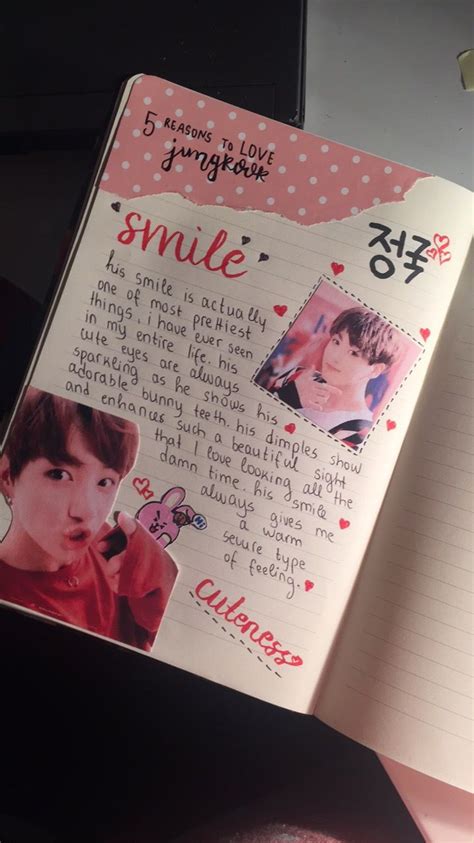 5 REASONS TO LOVE
jungkook
smile
정국
his smile is actually
one of most prettiest
things. i have ever seen
in my entire life. his
cute eyes are always
sparkling as he shows his
adorable bunny teeth. his dimples show
and enhances such a beautiful sight
that I love looking all the
damn time. his smile
always gives me
a warm
secure type
of feeling.
cuteness